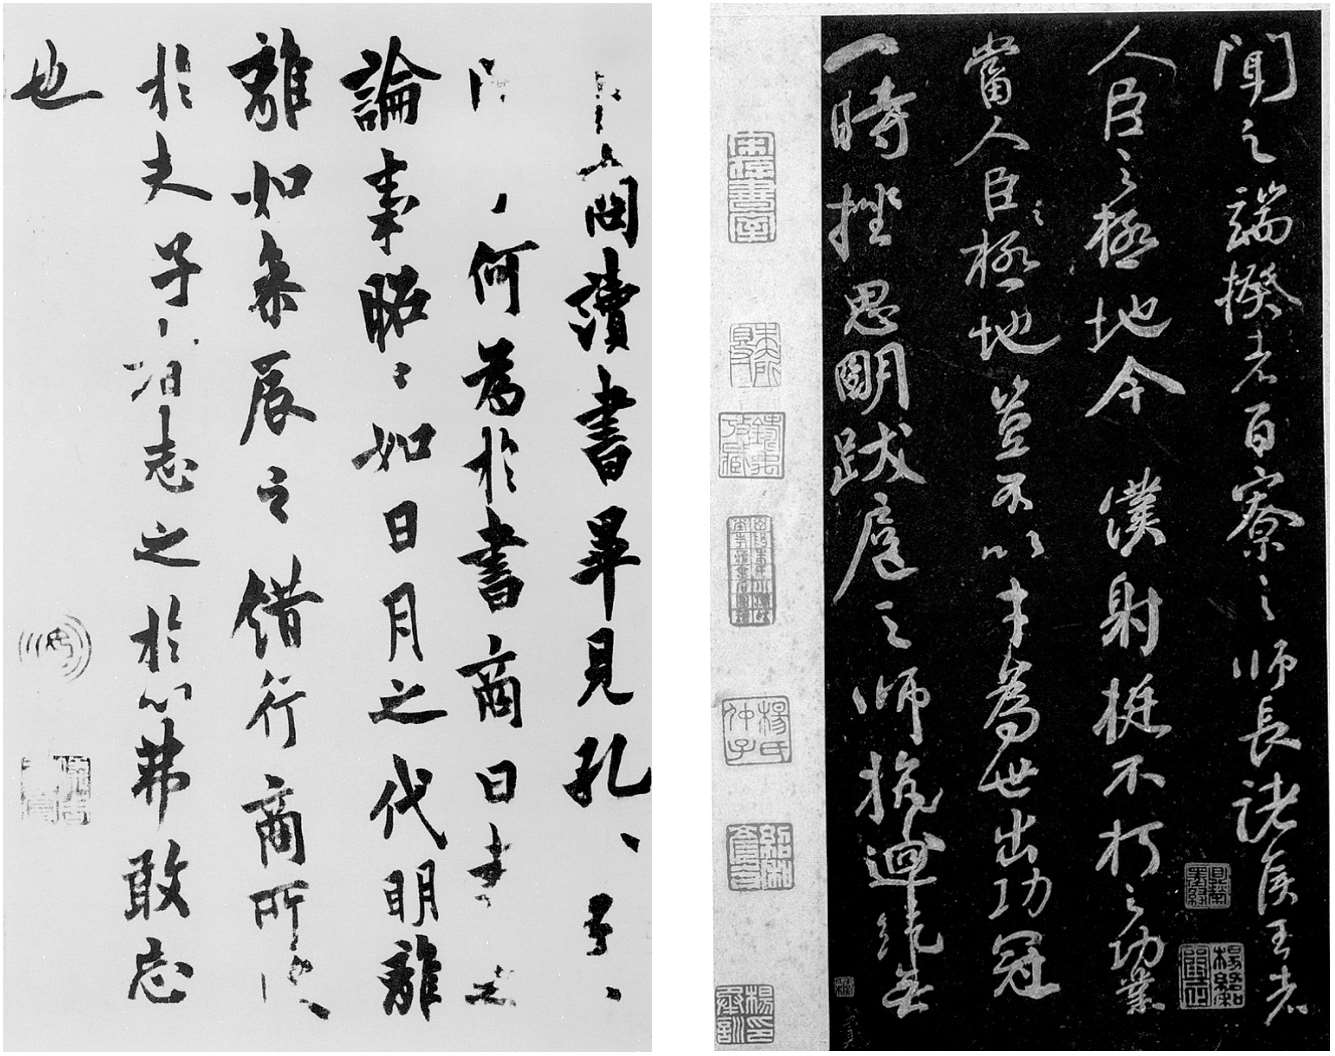 商讀書畢見孔〻子〻
何為於書商曰書之
論事昭〻如日月之代明離
離如參辰之錯行商所
於夫子者志之於心弗敢忘
也
聞之端揆者百寮之師長諸侯王者
人臣之極地今僕射挺不朽之功業
當人臣之極地豈不以才為世出功冠
一時挫思明跋扈之師抗迴紇無